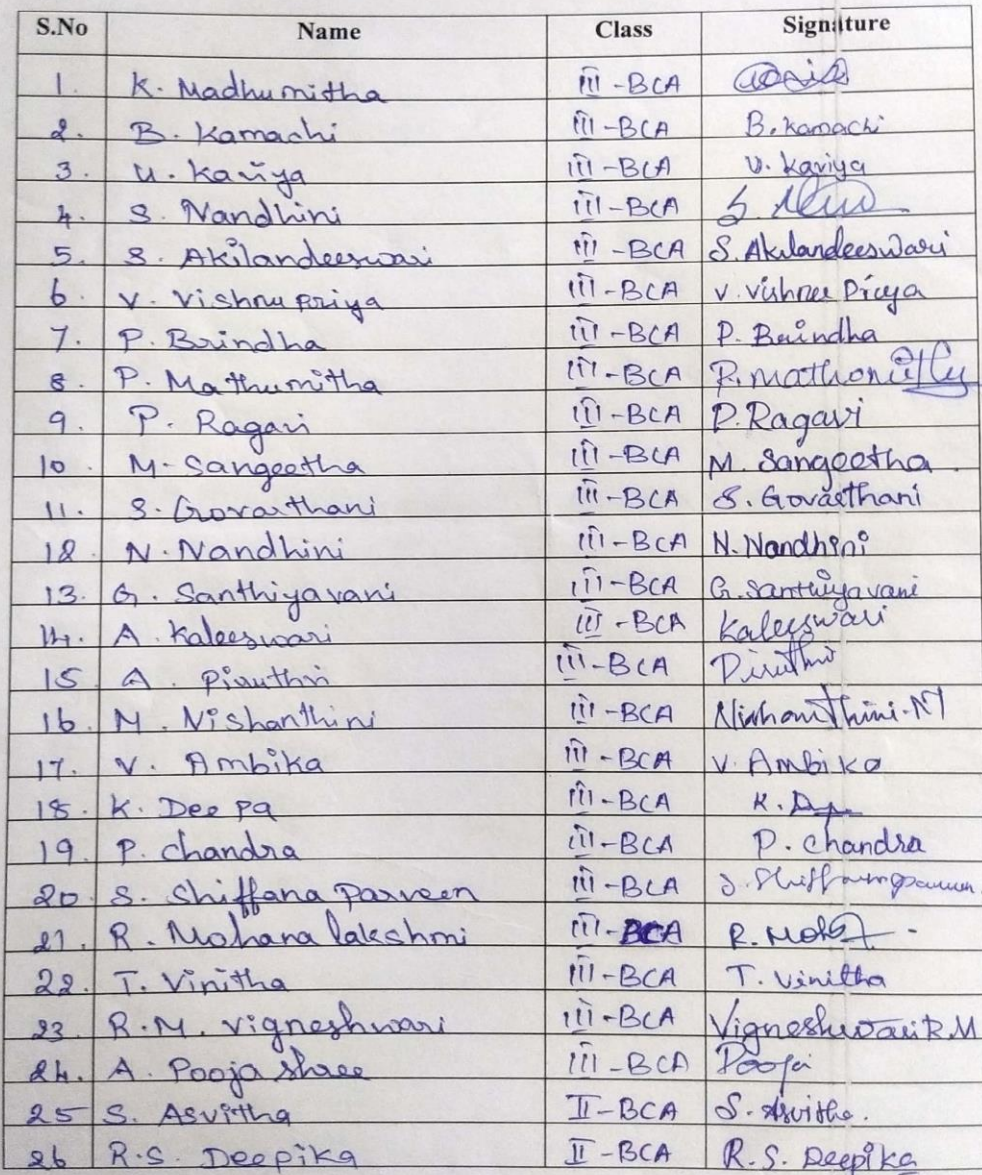 S.No Name Class Signature
1. K. Madhumitha III-BCA
2. B. Kamachi III-BCA B. Kamachi
3. U. Kaviya III-BCA U. Kaviya
4. S. Nandhini III-BCA
5. S. Akilandeeswari III-BCA S. Akilandeeswari
6. V. Vishnu priya III-BCA V. Vishnu Priya
7. P. Brindha III-BCA P. Brindha
8. P. Mathumitha III-BCA
9. P. Ragavi III-BCA P. Ragavi
10. M. Sangeetha III-BCA M. Sangeetha
11. S. Govarthani III-BCA S. Govarthani
12. N. Nandhini III-BCA N. Nandhini
13. G. Santhiyavani III-BCA G. Santhiyavani
14. A. Kaleeswari III-BCA Kaleeswari
15 A. Piruthri III-BCA
16. M. Nishanthini III-BCA Nishanthini.M
17. V. Ambika III-BCA V. Ambika
18. K. Deepa III-BCA
19. P. Chandra III-BCA P. Chandra
20. S. Shiffana Parveen III-BCA
21. R. Mohana lakshmi III-BCA
22. T. Vinitha III-BCA T. Vinitha
23. R.M. Vigneshwari III-BCA Vigneshwari R.M
24. A. Pooja shree III-BCA Pooja
25 S. Asvitha II-BCA S. Asvitha.
26 R.S. Deepika II-BCA R.S. Deepika